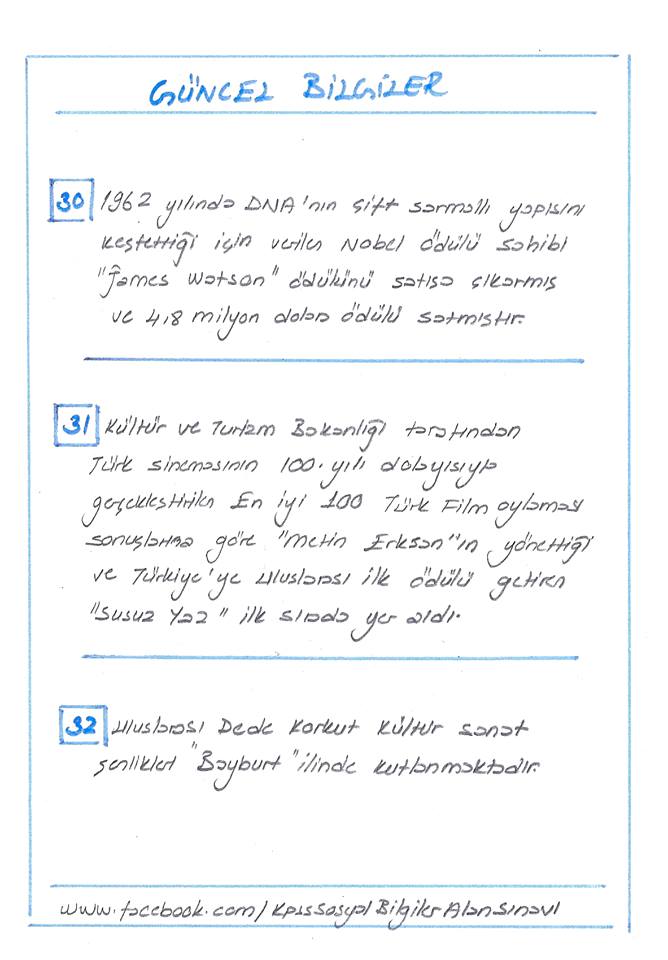 GÜNCEL BİLGİLER
30 1962 yılında DNA'nın çift sarmallı yapısını
keşfettiği için verilen Nobel ödülü sahibi
"James Watson" ödülünü satışa çıkarmış
ve 4,8 milyon dolara ödülü satmıştır.
31 Kültür ve Turizm Bakanlığı tarafından
Türk sinemasının 100. yılı dolayısıyla
gerçekleştirilen En iyi 100 Türk Film oylaması
sonuçlarına göre "Metin Erksan"ın yönettiği
ve Türkiye'ye uluslarası ilk ödülü getiren
"Susuz Yaz" ilk sırada yer aldı.
32 Uluslarası Dede Korkut Kültür sanat
şenlikleri "Bayburt" ilinde kutlanmaktadır.
www.facebook.com/KpssSosyalBilgilerAlanSınavı